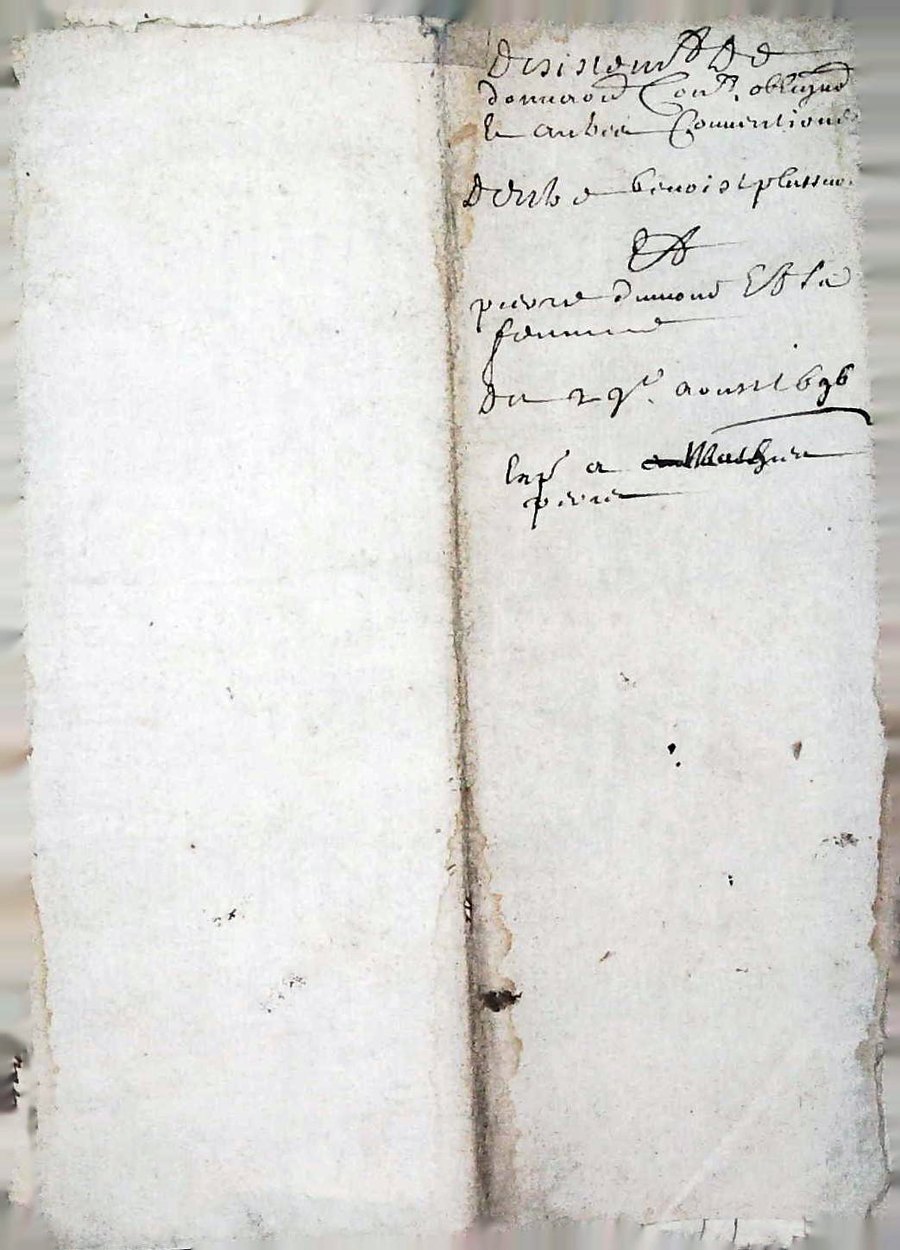 Desistem^t De
Con^t. obligaõn
et autres Conventions
Entre benoist plasson
Et
pierre dumond Et sa
femme
Du 29^e. aoust 1696
Exp^é a Mathieu
pierre